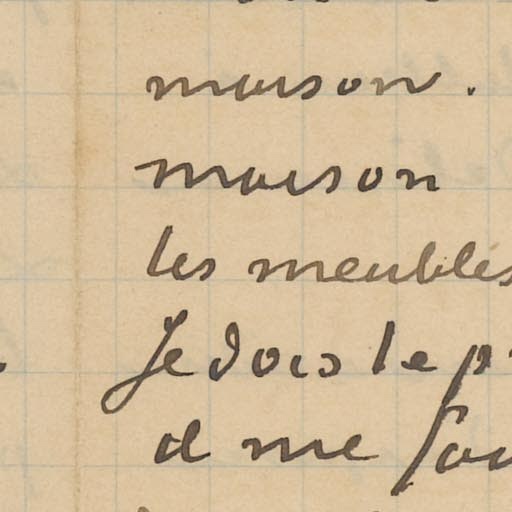 maison.
maison
les meubles
Je dois le p
il me fau